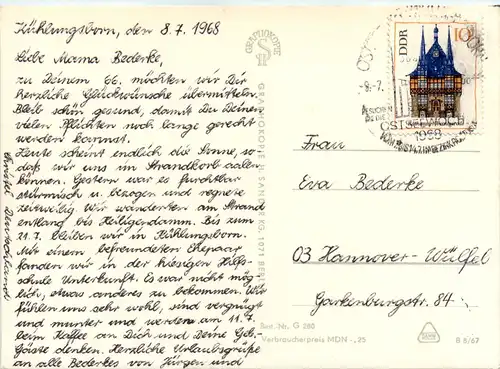 Kühlungsborn, den 8.7.1968
Liebe Mama Bederke,
zu Deinem 66. möchten wir Dir
herzliche Glückwünsche übermitteln.
Bleib schön gesund, damit Du Deinen
vielen Pflichten noch lange gerecht
werden kannst.
Heute scheint endlich die Sonne, so
daß wir uns im Strandkorb aalen
können. Gestern war es furchtbar
stürmisch u. bezogen und regnete
zeitweilig. Wir wanderten am Strand
entlang bis Heiligendamm. Bis zum
21.7. bleiben wir in Kühlungsborn.
Mit einem befreundeten Ehepaar
fanden wir in der hiesigen Hilfs-
schule Unterkunft. Es war nicht mög-
lich, etwas anderes zu bekommen. Wir
fühlen uns sehr wohl, sind vergnügt
und munter und werden am 11.7.
beim Kaffee an Dich und Deine Geb.-
Gäste denken. Herzliche Urlaubsgrüße
an alle Bederkes von Jürgen und
Christel Deutschland
GRAPHOKOPIE
GRAPHOKOPIE H. SANDER KG, 1071 BERLIN
DDR
10
-9.-7.
OSTSEEWOCHE
1968
Frau
Eva Bederke
03 Hannover-Wülfel
Garkenburgstr. 84
Best.-Nr. G 280
Verbraucherpreis MDN -,25
B 6/67